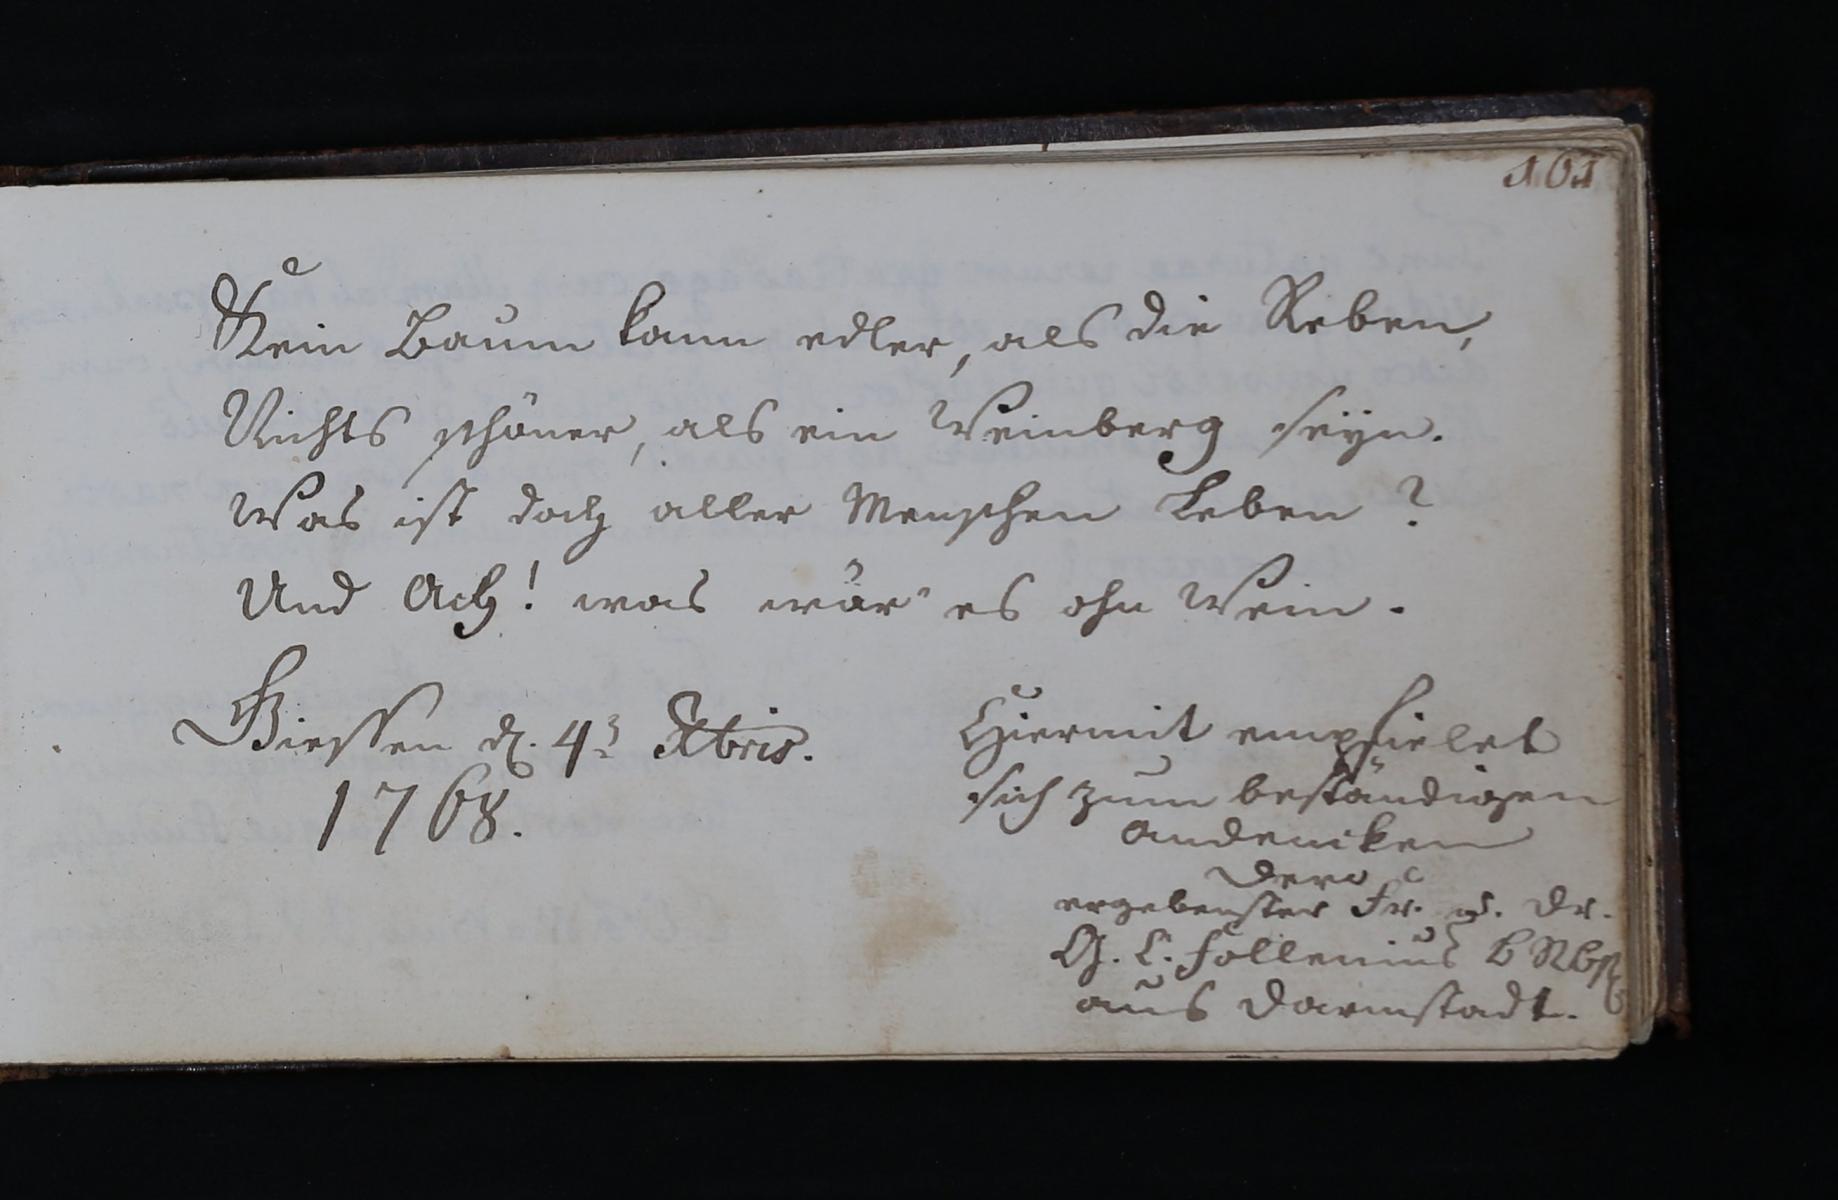 101
Kein Baum kann edler, als die Reben,
Nichts schöner, als ein Weinberg seÿn.
Was ist doch aller Menschen Leben?
Und Ach! was wär' es ohn Wein.
Giessen d. 4t Xbris.
1768.
Hiermit empfielet
sich zum beständigen
Andencken
Dero
ergebenster Fr. u. Dr.
C. Follenius
aus Darmstadt.